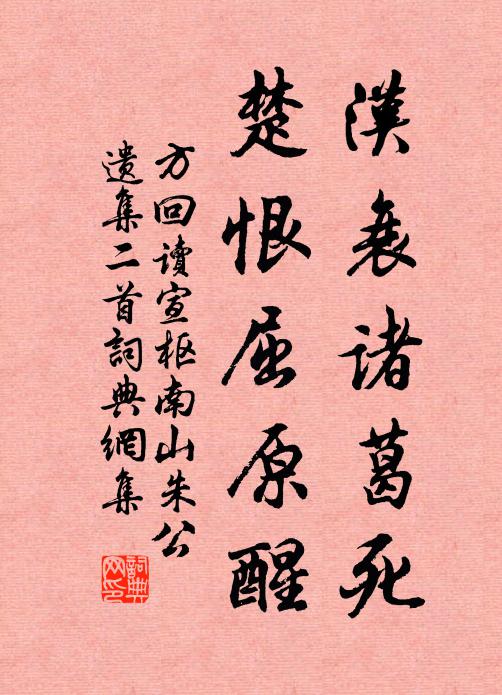 漢衰诸葛死
楚恨屈原醒
方回讀宣枢南山朱公
遗集二首詞典網集
詞典網印